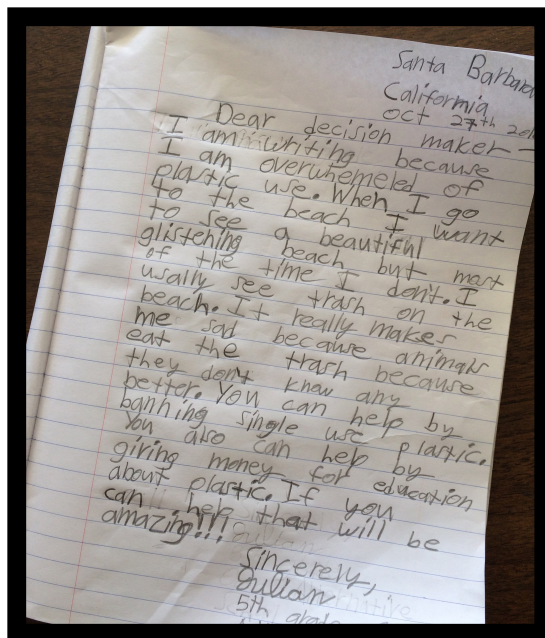 Santa Barbara
California
Oct 27th
Dear decision maker
I am writing because
I am overwhemeled of
plastic use. When I go
to the beach I want
to see a beautiful
glistening beach but most
of the time I don't. I
usally see trash on the
beach. It really makes
me sad because animals
eat the trash because
they don't know any
better. You can help by
banning single use plastic.
You also can help by
giving money for education
about plastic. If you
can help that will be
amazing!!!
Sincerely,
5th grade